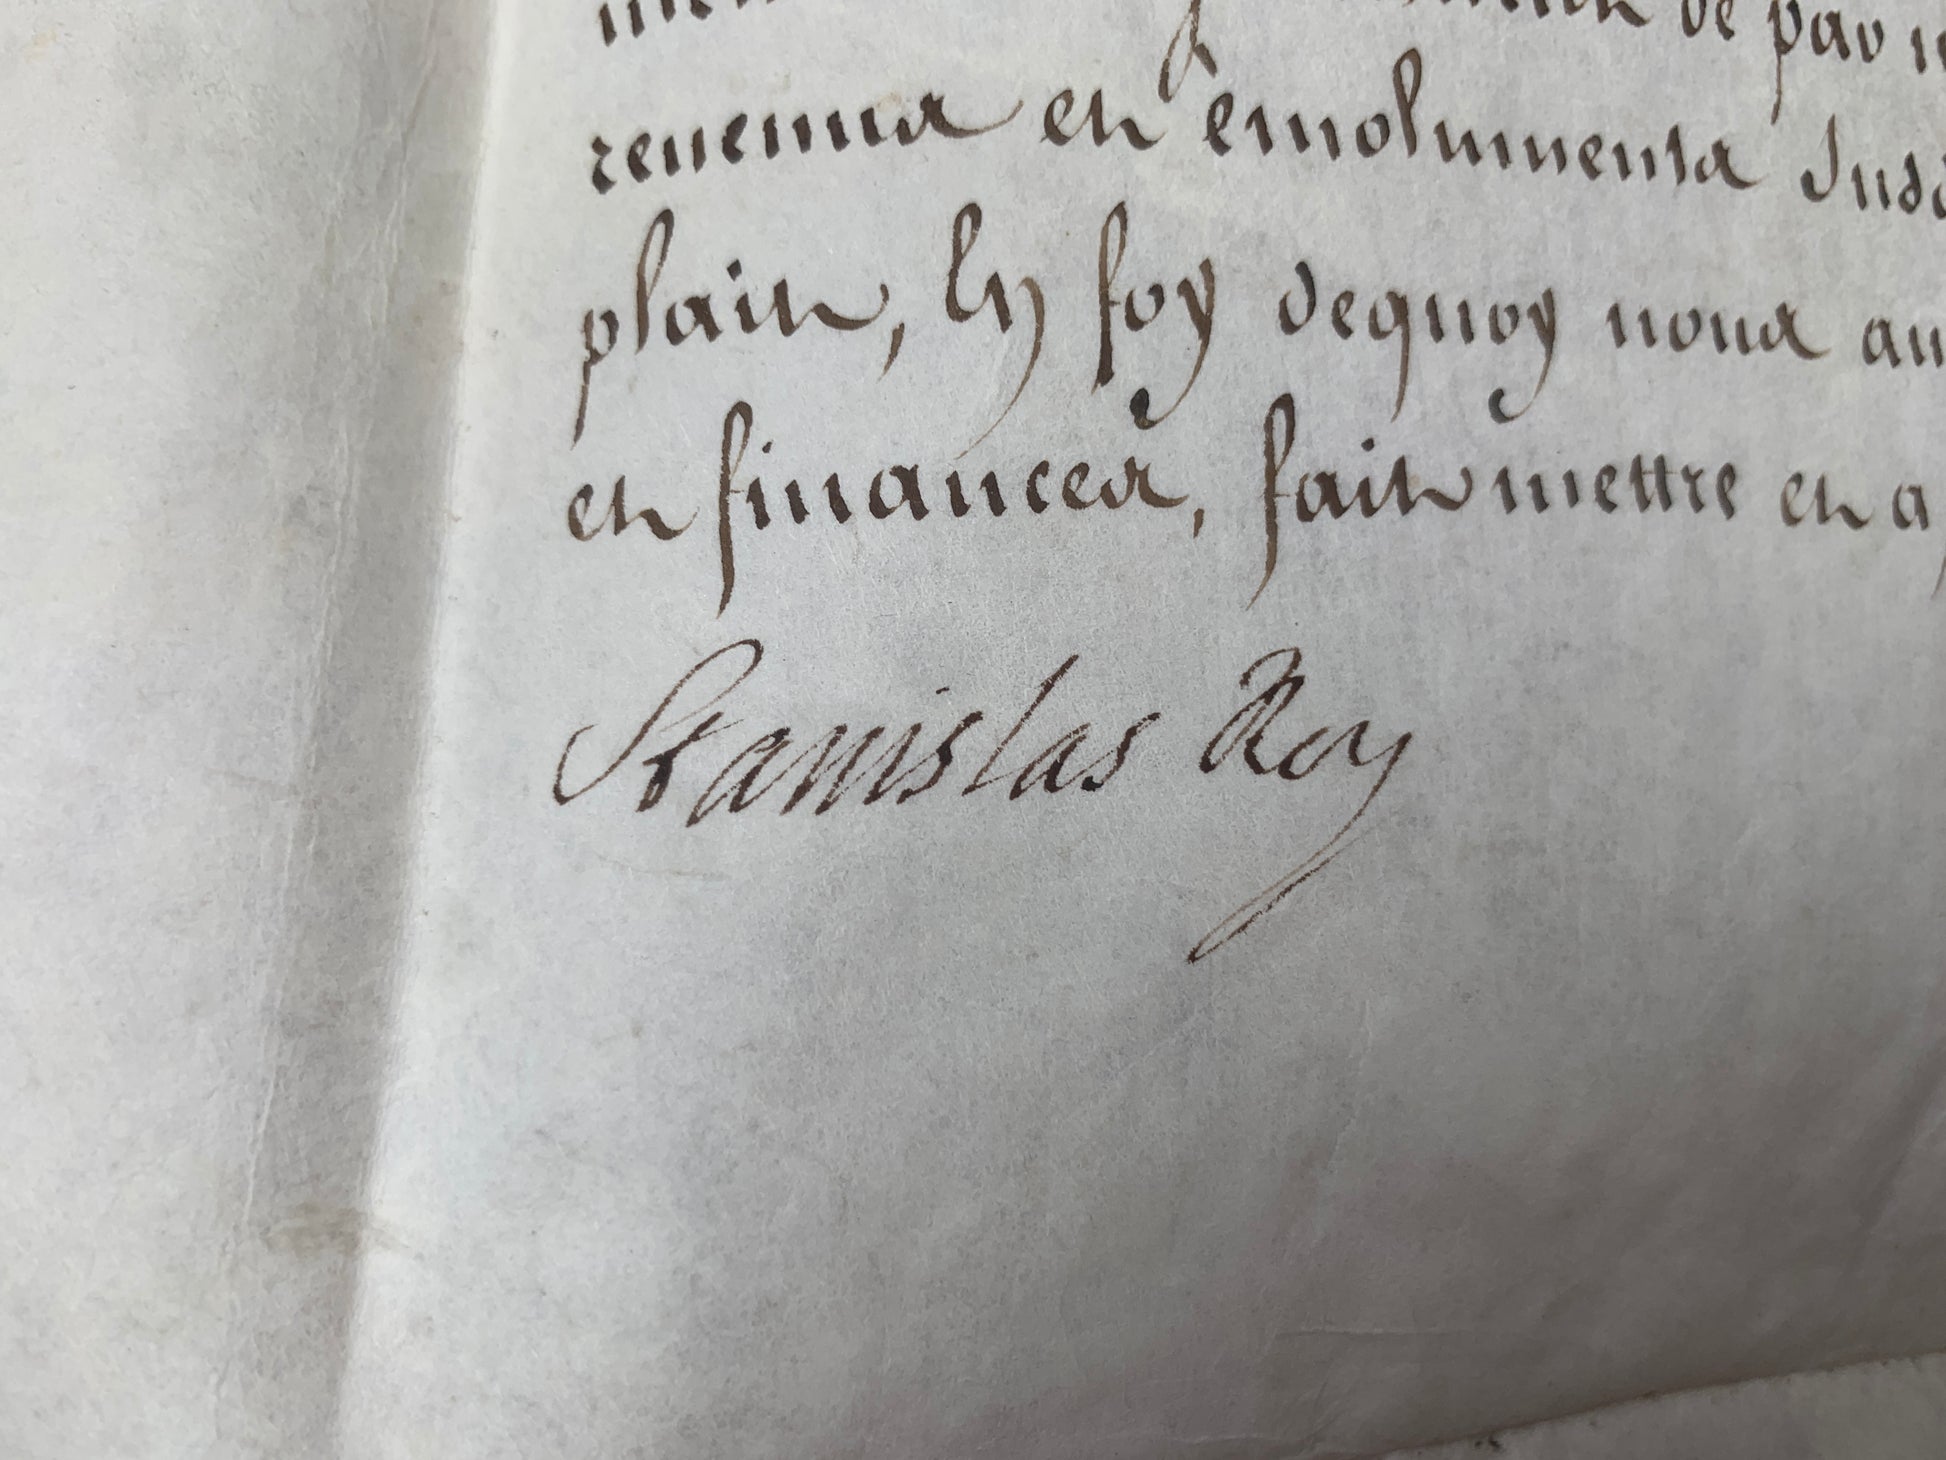 de par
revenus et emolumens Susd
plait, En foy dequoy nous au
et finances, fait mettre et a
Stanislas Roy